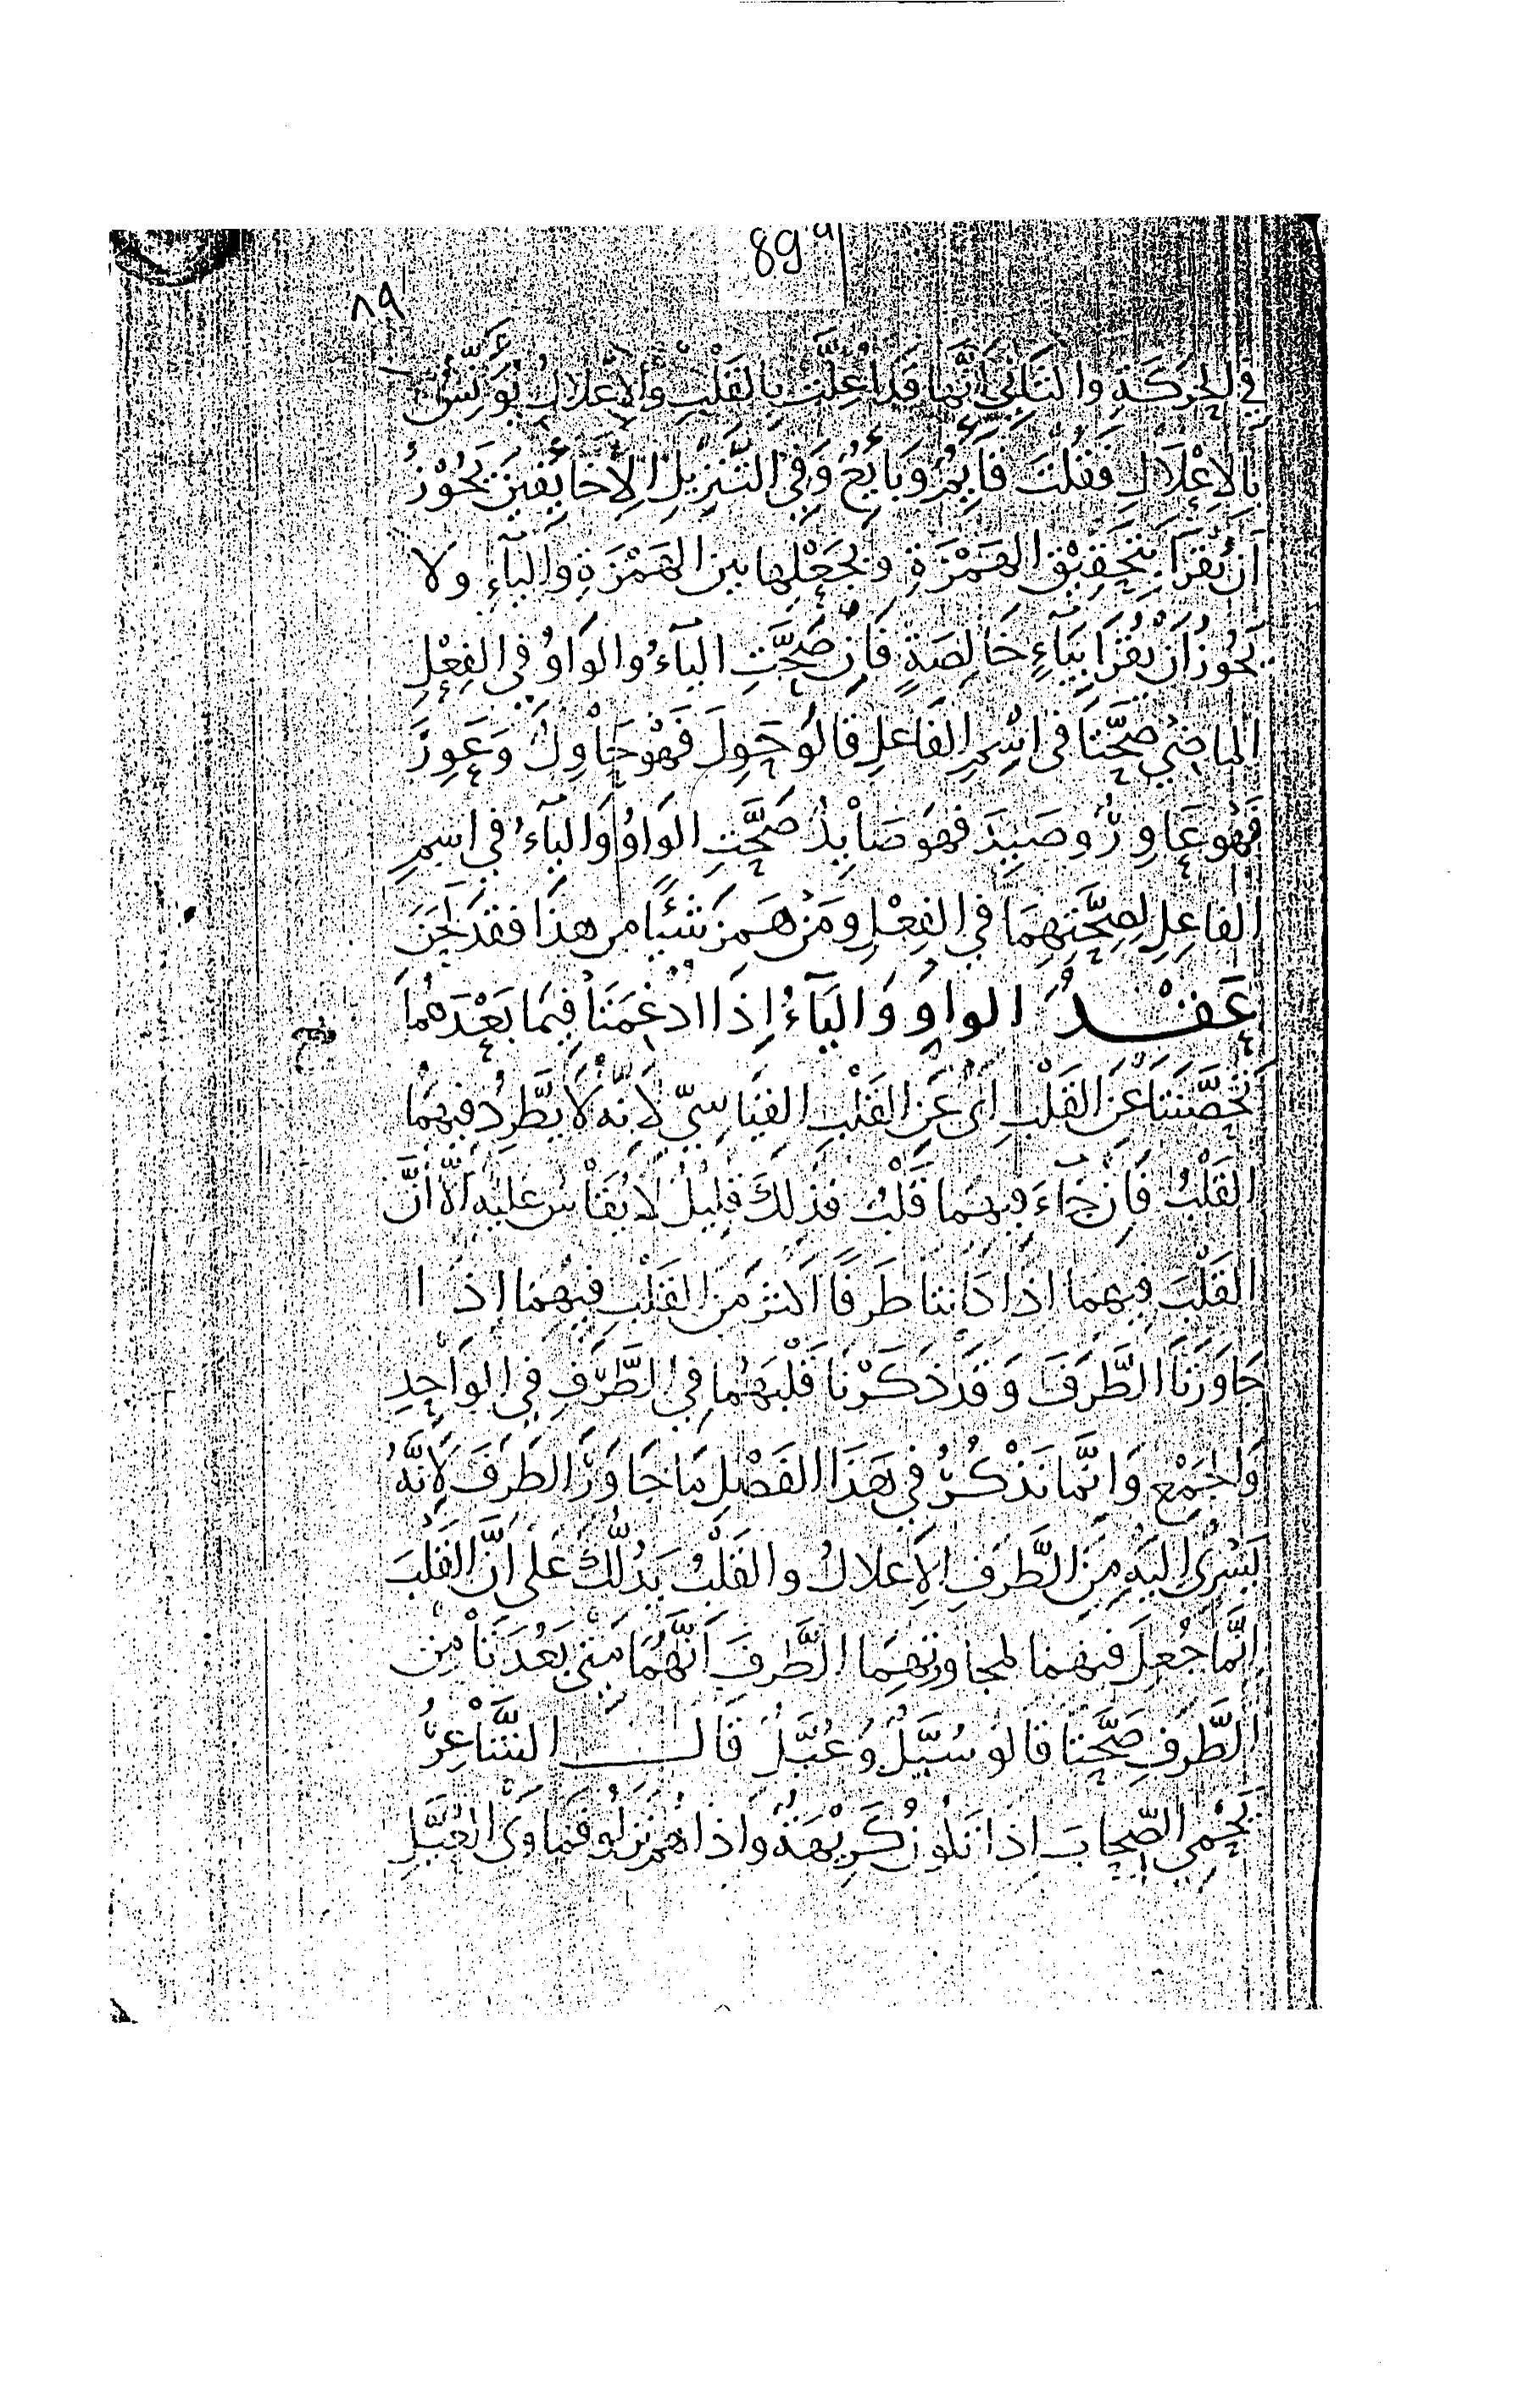 89
٨٩
في الحَرَكَةِ والثَّاني أنَّها قَد أُعِلَّت بِالقَلْبِ والإعْلالُ يُؤنِّسُ
بالإعْلَالِ فَقُلْتَ قَايِمٌ وَبَايِعٌ وَفي التَّنزِيلِ إلاَّ خَايفينَ يَجُوْزُ
أنْ يُقرَا بِتَحْقِيْقِ الهَمْزَةِ وبجَعْلِها بين الهَمْزَةِ وَاليَآءِ ولا
يَجُوزُ أنْ يُقرَا بيَآءٍ خَالِصَةٍ فَإن صَحَّتِ اليآءُ والوَاوُ في الفِعْلِ
الماضِي صَحَّتَا في اسْمِ الفَاعلِ قالُو حَوِلَ فَهْو حَاْوِلٌ وَعَوِرَ
فَهُو عَاوِرٌ وصَيِدَ فهوَ صَايِدٌ صَحَّتِ الوَاوُ وَاليآءُ في اسِمِ
الفاعِلِ لِصِحَّتِهِمَا في الفِعْلِ ومَنْ هَمزَ شَيْئًا من هذا فَقَد لَحَنَ
عَقْدٌ الواوُ وَاليَآءُ إذَا ادْغِمَتَا فِيمَا بَعْدَهُمَا
تَحصَّنَتَا عَنِ القَلْبِ أي عَنِ القَلْبِ القيَاسِيّ لأنّه لَا يَطَّرِدُ فيهمَا
القَلْبُ فَإن جَآءَ فيهمَا قَلْبٌ فذلكَ قليْلٌ لا يُقَاسُ عليْه الّا أنَّ
القَلْبَ فيهما اذا كانتا طَرَفًا أكثرُ منَ القَلْبِ فيْهمَا إذ ا
جَاوَرَتَا الطَّرَفَ وَقَدْ ذَكَرْنَا قَلْبَهُما في الطَّرَفِ في الوَاْحِدِ
وَالجَمْعِ وَانَّما نَذْكُرُ في هَذَا الفَصْلِ مَا جَاوَرَ الطَرَفَ لأنَّهُ
يَسْرِى اليْهِ مِنَ الطَّرَفِ الإعلالُ والقَلْبُ يَدُلُّكَ عَلى أنَّ القَلْبَ
انَّمَا جُعِلَ فيهما لمجاورتهِمَا الطَّرفَ أنَّهُمَا مَتى بَعُدَتَا مِن
الطَّرَفِ صَحَّتا قَالُو سُيَّلٌ وعُيَّلٌ قَالَ الشَّاْعِرُ
يَحْمِي الصِّحابَ إذا تكُونُ كَرِيْهَةٌ واذا هُم نزلُو فَمَأوَى العُيَّلِ